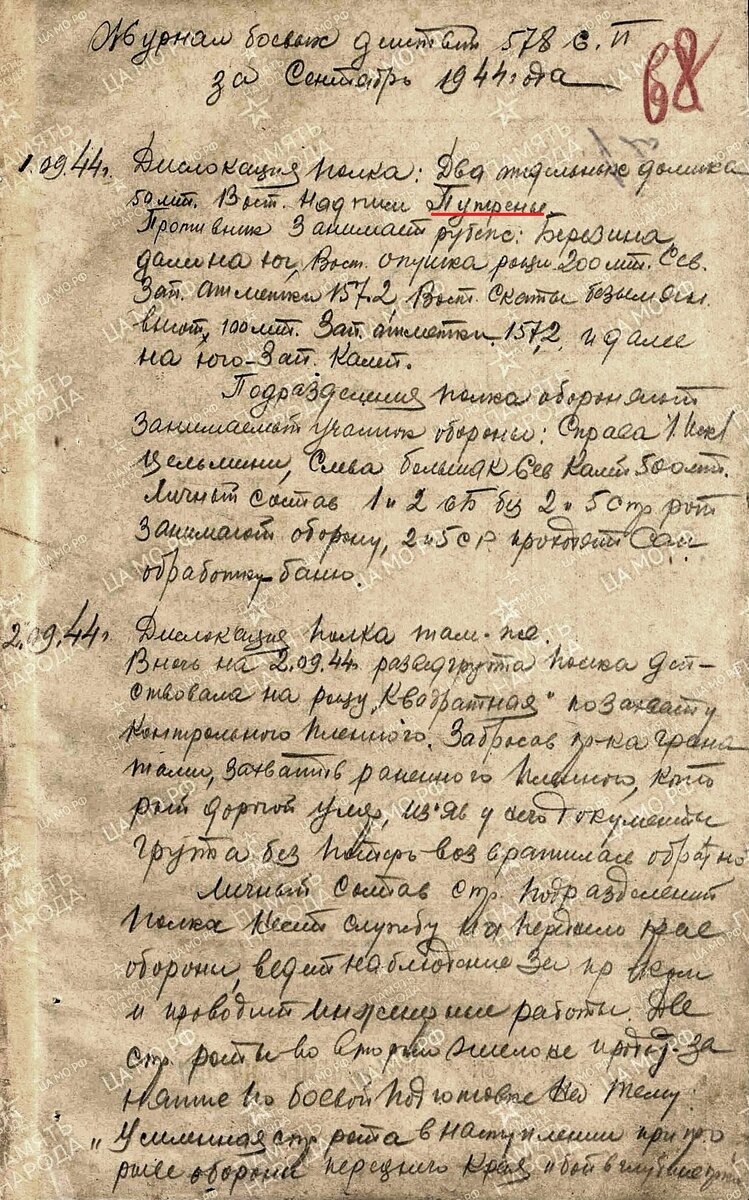 Журнал боевых действ 578 с.п
за Сентябрь 1944 года
68
1.09.44г. Дислокация полка: Два отдельных домика
50 мт. Вост. надписи Путрены
Противник занимает рубеж: Березина
далее на юг, Вост. опушка рощи 200 мт. Сев.
Зап. отметки 157.2 Вост. скаты безымян.
высот, 100 мт. Зап. отметки 157,2 и далее
на юго-Зап. Калт.
Подразделения полка обороняют
занимаемый участок обороны: Справа
Цельмини, Слева большак Сев Калт 500 мт.
Личный состав 1 и 2 сб без 2 и 5 стр рот
занимают оборону, 2 и 5 с р проходят сан
обработку баню.
2.09.44г. Дислокация полка там-же.
В ночь на 2.09.44г. разведгруппа полка дей-
ствовала на рощу "Квадратная" по захвату
контрольного пленного. Забросав пр-ка грана
тами, захватив раненного пленного, кото
рый дорогой умер, из'яв у него документы
группа без потерь возвратилась обратно
Личный состав стр. подразделений
полка несет службу на переднем крае
обороны, ведет наблюдение за пр-ком
и проводит инженерные работы. Две
стр. роты во втором эшелоне провод. за
нятие по боевой подготовке на тему
"Усиленная стр. рота в наступлении при про
рыве обороны переднего края и бой в глубине